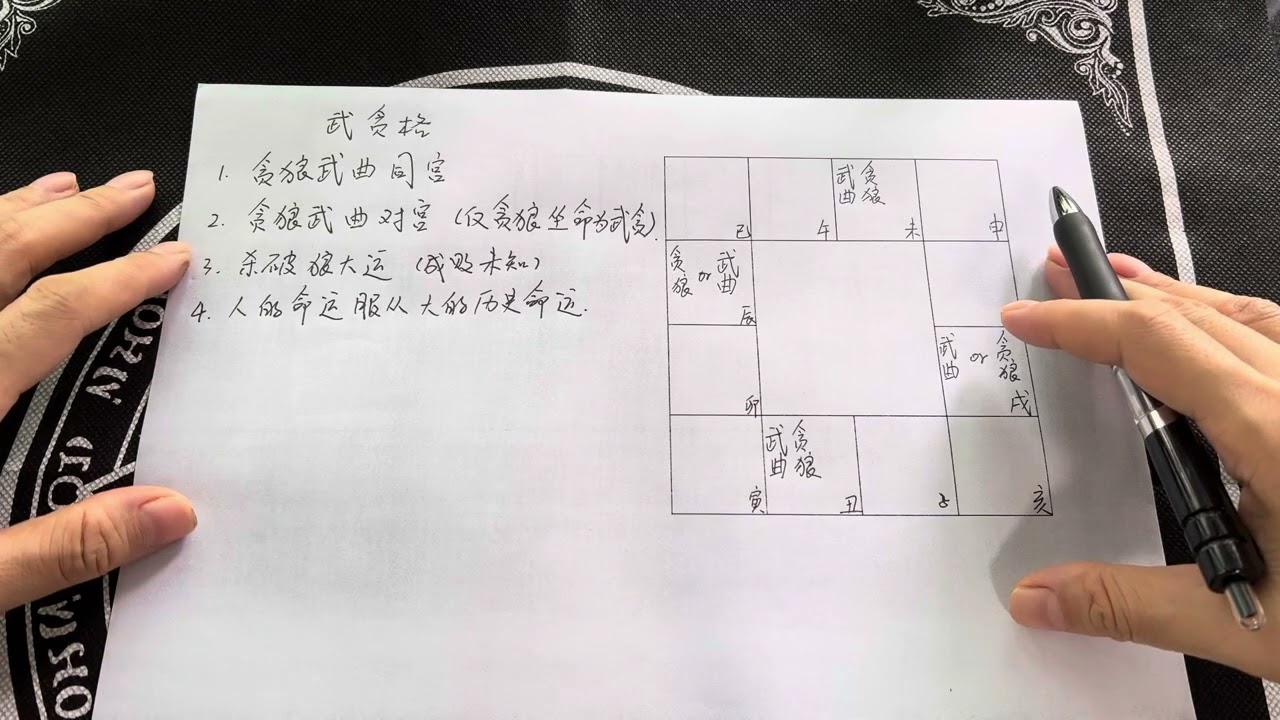 武贪格
1. 贪狼武曲同宫
2. 贪狼武曲对宫（仅贪狼坐命为武贪）.
3. 杀破狼大运（成败未知）
4. 人的命运服从大的历史命运.
巳
午
武曲 贪狼
未
申
贪狼 or 武曲
辰
武曲 or 贪狼
戌
卯
寅
武曲 贪狼
丑
子
亥